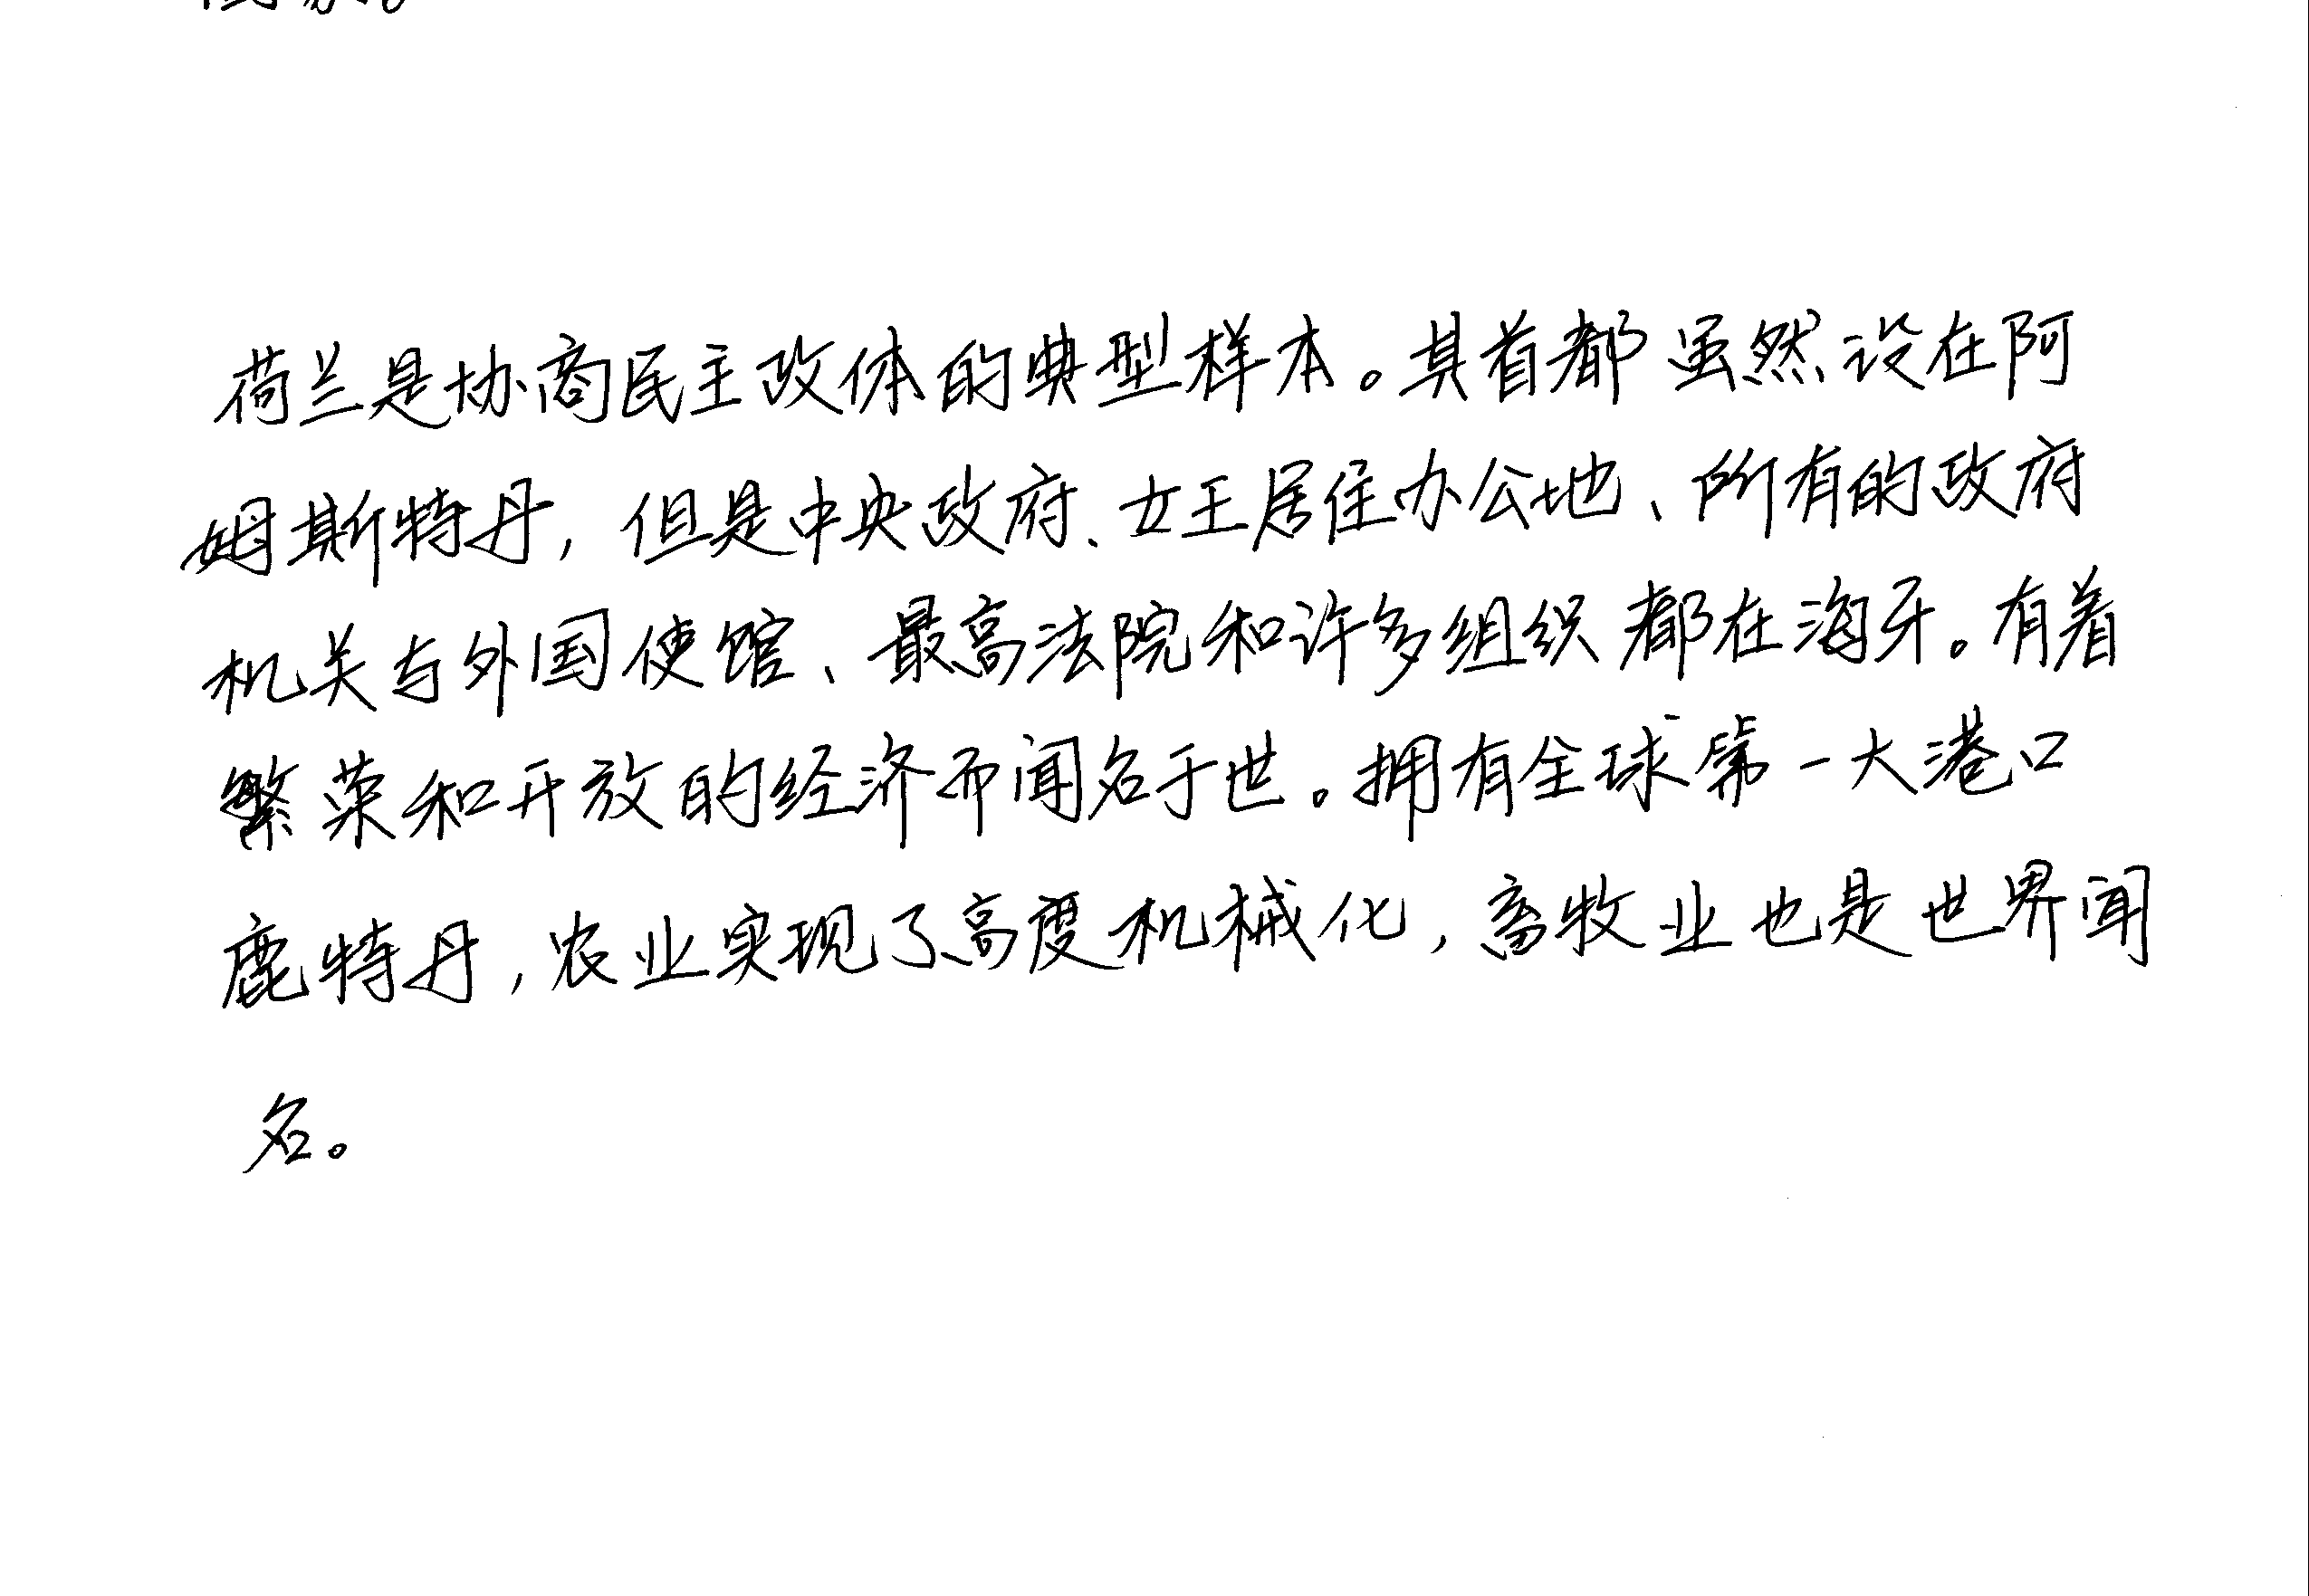 荷兰是协商民主政体的典型样本。其首都虽然设在阿
姆斯特丹，但是中央政府、女王居住办公地、所有的政府
机关与外国使馆、最高法院和许多组织都在海牙。有着
繁荣和开放的经济而闻名于世。拥有全球第一大港口
鹿特丹，农业实现了高度机械化，畜牧业也是世界闻
名。